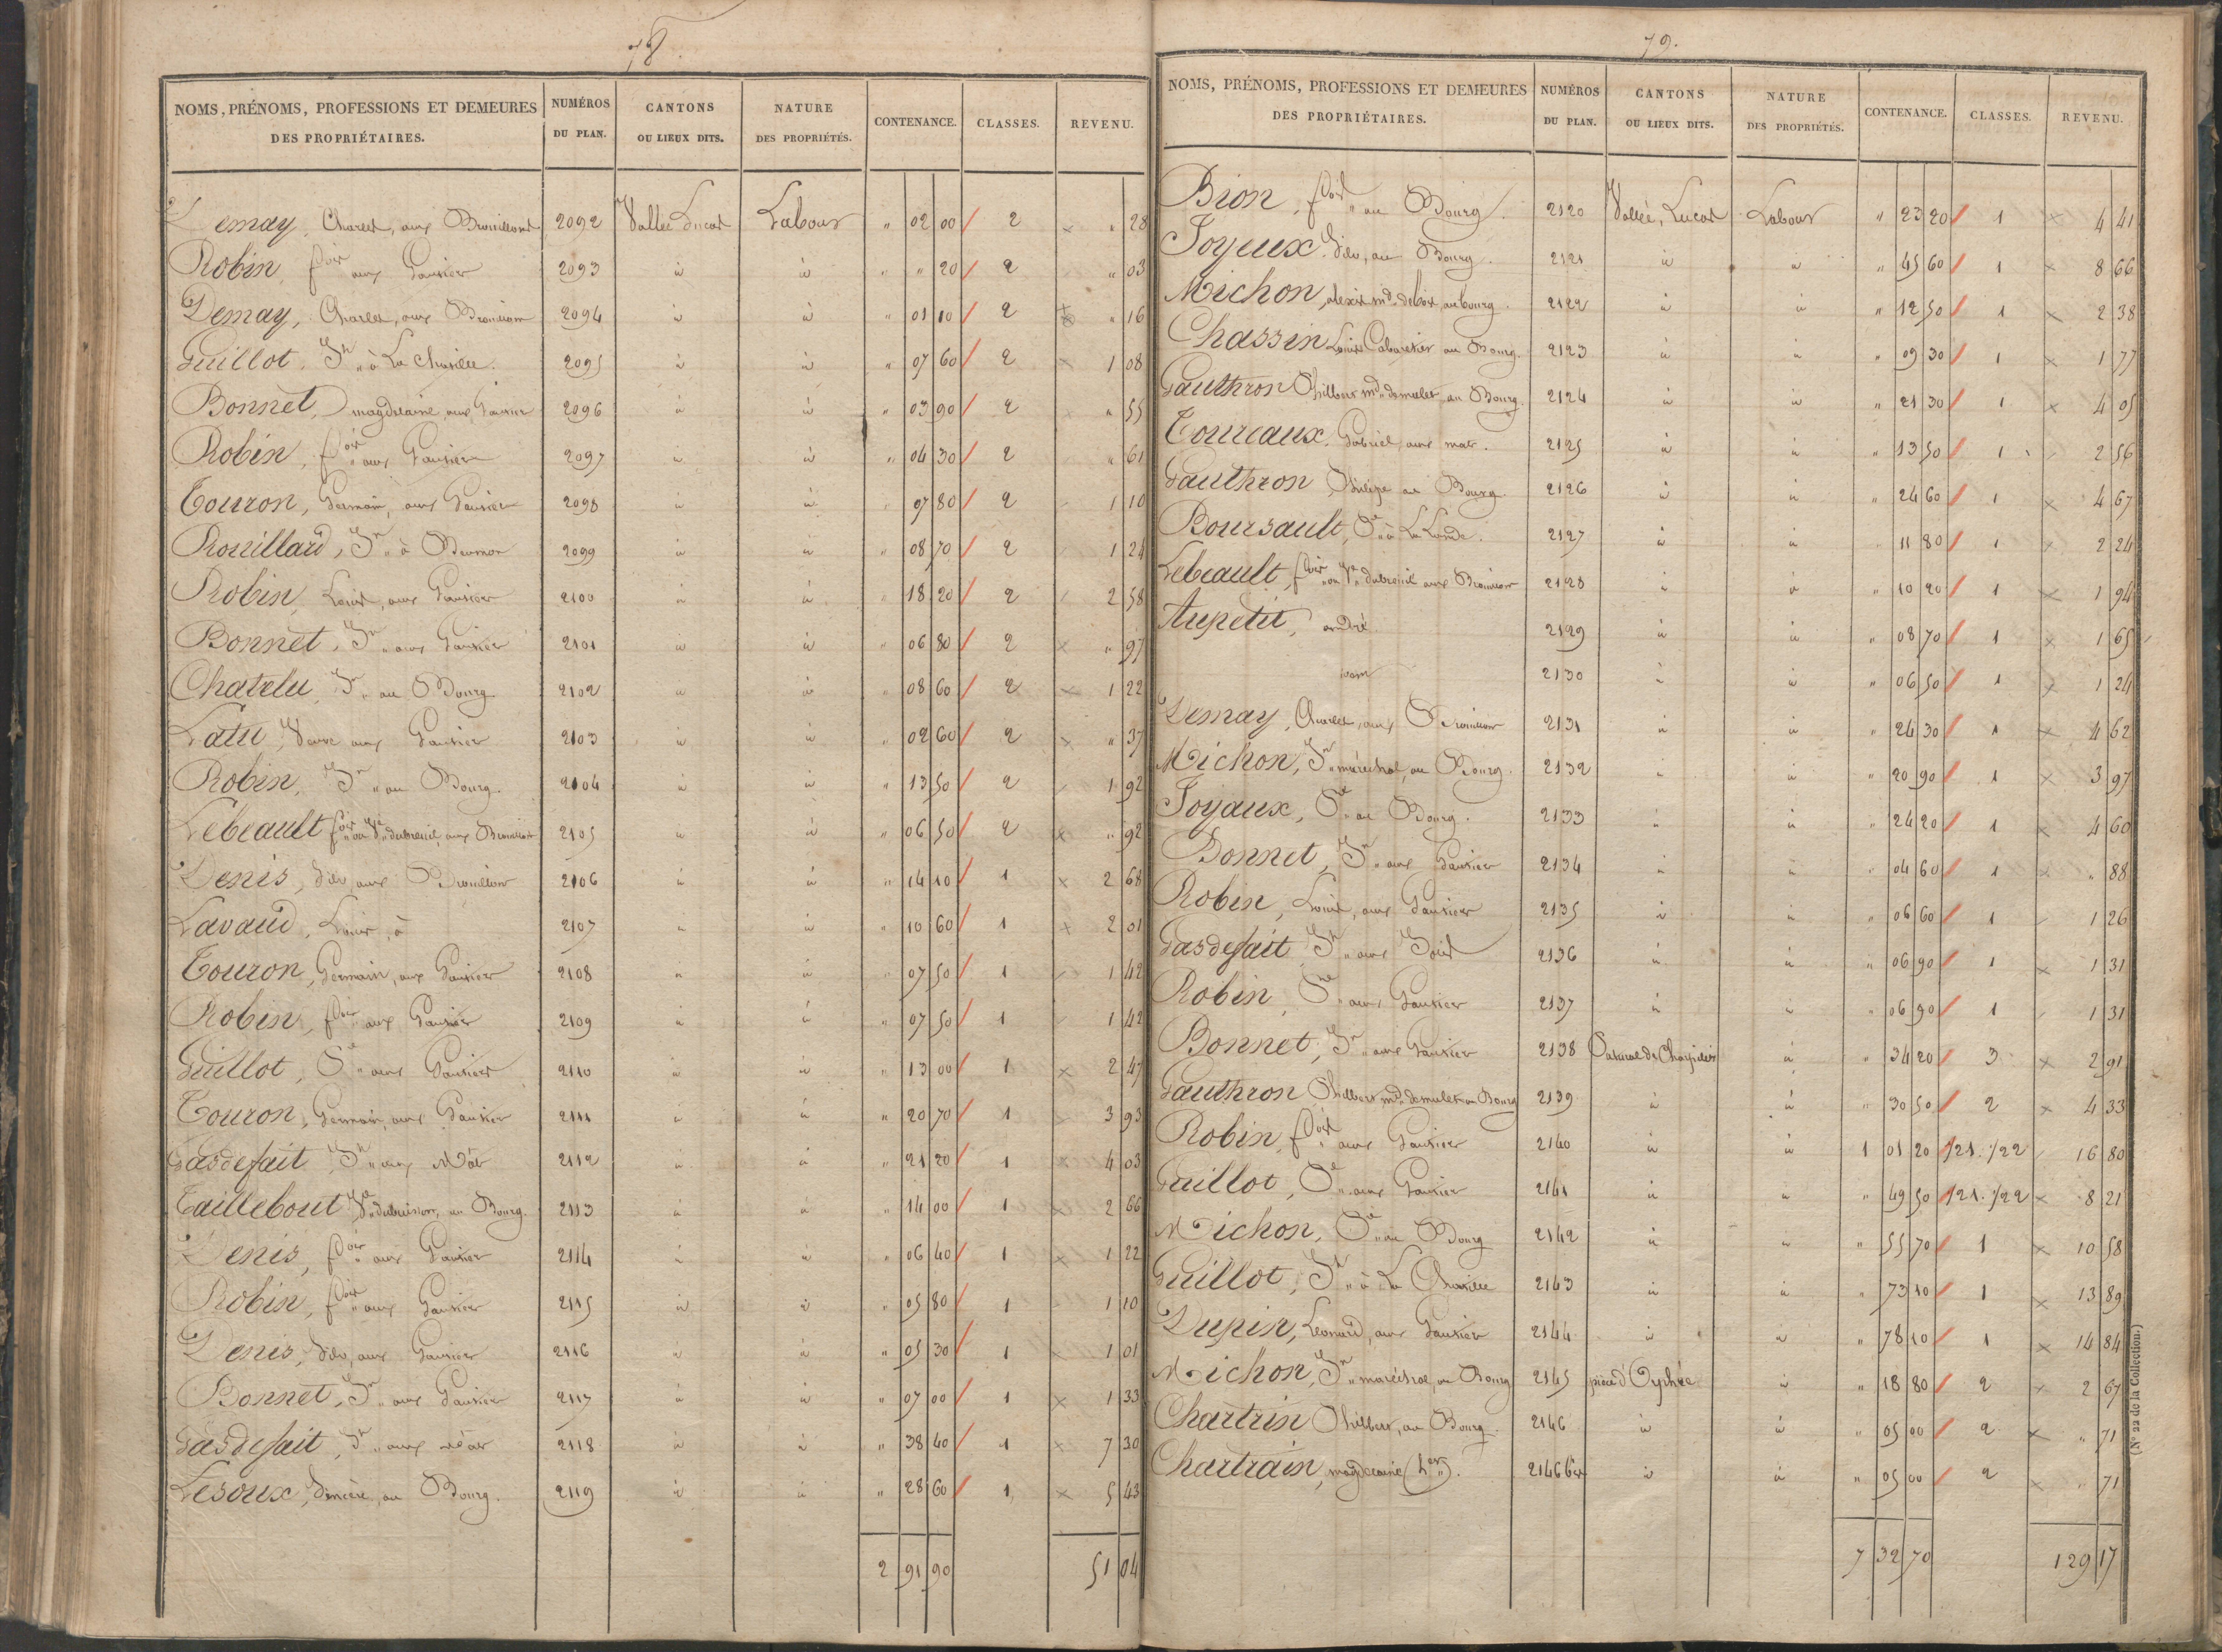 78.
NOMS, PRÉNOMS, PROFESSIONS ET DEMEURES DES PROPRIÉTAIRES. NUMÉROS DU PLAN. CANTONS OU LIEUX DITS. NATURE DES PROPRIÉTÉS. CONTENANCE. CLASSES. REVENU.
Demay, Charles, aux 2092 Vallée Lucas Labour " 02 00 / 2 × " 28
Robin, aux Gautier 2093 id id " " 20 / 2 " 03
Demay, Charles, aux 2094 id id " 01 10 / 2 × " 16
Guillot, Jn " à La 2095 id id " 07 60 / 2 × 1 08
Bonnet, magdelaine, aux Gautier 2096 id id " 03 90 / 2 × " 55
Robin, aux Gautier 2097 id id " 04 30 / 2 " 61
Touron, Germain, aux Gautier 2098 id id " 07 80 / 2 1 10
Rouillard, Jn " à 2099 id id " 08 70 / 2 1 24
Robin, Louis, aux Gautier 2100 id id " 18 20 / 2 2 58
Bonnet, Jn " aux Gautier 2101 id id " 06 80 / 2 × " 97
Chatelu, Jn " au Bourg 2102 id id " 08 60 / 2 × 1 22
Latu, Veuve aux Gautier 2103 id id " 02 60 / 2 × " 37
Robin, Jn " au Bourg. 2104 id id " 13 50 / 2 1 92
Lebeault aux 2105 id id " 06 50 / 2 × " 92
Denis, Silv, aux 2106 id id " 14 10 / 1 × 2 68
Lavaud, Louis, à 2107 id id " 10 60 / 1 × 2 01
Touron, Germain, aux Gautier 2108 id id " 07 50 / 1 1 42
Robin, aux Gautier 2109 id id " 07 50 / 1 1 42
Guillot, aux Gautier 2110 id id " 13 00 / 1 × 2 47
Touron, Germain, aux Gautier 2111 id id " 20 70 / 1 3 93
Gasdefait, Jn " aux 2112 id id " 21 20 / 1 × 4 03
Taillebout, au Bourg. 2113 id id " 14 00 / 1 × 2 66
Denis, aux Gautier 2114 id id " 06 40 / 1 × 1 22
Robin, aux Gautier 2115 id id " 05 80 / 1 1 10
Denis, Silv, aux Gautier 2116 id id " 05 30 / 1 × 1 01
Bonnet, Jn " aux Gautier 2117 id id " 07 00 / 1 × 1 33
Gasdefait, Jn " aux 2118 id id " 38 40 / 1 × 7 30
Lesoux, au Bourg. 2119 id id " 28 60 / 1 × 5 43
2 91 90 51 04
79.
NOMS, PRÉNOMS, PROFESSIONS ET DEMEURES DES PROPRIÉTAIRES. NUMÉROS DU PLAN. CANTONS OU LIEUX DITS. NATURE DES PROPRIÉTÉS. CONTENANCE. CLASSES. REVENU.
Bion, au Bourg. 2120 Vallée, Lucas Labour " 23 20 / 1 × 4 41
Joyeux, Silv, au Bourg. 2121 id id " 45 60 / 1 × 8 66
Michon, alexis md. de bois, au bourg. 2122 id id " 12 50 / 1 × 2 38
Chassin, Louis Cabaretier au Bourg. 2123 id id " 09 30 / 1 × 1 77
Gauthron Philbert md. de mules, au Bourg. 2124 id id " 21 30 / 1 × 4 05
Toureaux, Gabriel, aux mats. 2125 id id " 13 50 / 1 2 56
Gauthron Philipe au Bourg. 2126 id id " 24 60 / 1 × 4 67
Boursault, à La Lande. 2127 id id " 11 80 / 1 × 2 24
Lebeault, aux 2128 id id " 10 20 / 1 × 1 94
Aupetit, andré. 2129 id id " 08 70 / 1 × 1 65
idem 2130 id id " 06 50 / 1 × 1 24
Demay, Charles, aux 2131 id id " 24 30 / 1 × 4 62
Michon, Jn " maréchal, au Bourg. 2132 id id " 20 90 / 1 × 3 97
Joyaux, au Bourg. 2133 id id " 24 20 / 1 × 4 60
Bonnet, Jn " aux Gautier 2134 id id " 04 60 / 1 × " 88
Robin, Louis, aux Gautier 2135 id id " 06 60 / 1 1 26
Gasdefait, Jn " aux 2136 id id " 06 90 / 1 × 1 31
Robin, aux Gautier 2137 id id " 06 90 / 1 1 31
Bonnet, Jn " aux Gautier 2138 id " 34 20 / 3 × 2 91
Gauthron Philbert, md. de mules au Bourg 2139 id id " 30 50 / 2 × 4 33
Robin, aux Gautier 2140 id id 1 01 20 / 1/2 1. 1/2 2 16 80
Guillot, aux Gautier 2141 id id " 49 50 / 1/2 1. 1/2 2 × 8 21
Michon, au Bourg 2142 id id " 55 70 / 1 × 10 58
Guillot, Jn " à La 2143 id id " 73 10 / 1 × 13 89
Dupin, Leonard, aux Gautier 2144 id id " 78 10 / 1 × 14 84
Michon, Jn " maréchal, au Bourg 2145 id " 18 80 / 2 × 2 67
Chartrin Philbert, au Bourg. 2146 id id " 05 00 / 2 × " 71
Chartrain, magdelaine (hers). 2146 bis id id " 05 00 / 2 × " 71
7 32 70 129 17
(No 22 de la Collection.)